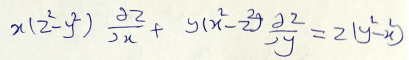 x(z²-y²) ∂z/∂x + y(x²-z²) ∂z/∂y = z(y²-x²)